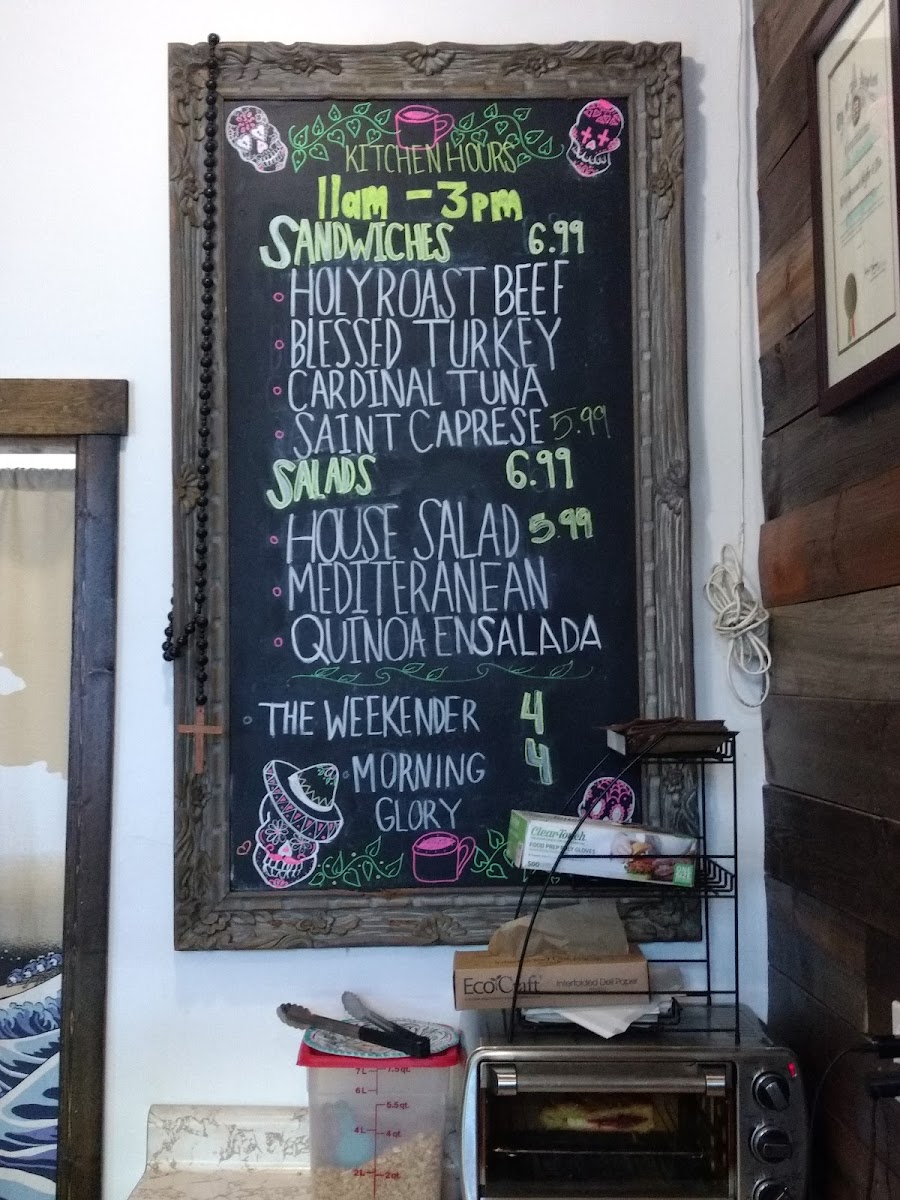 KITCHEN HOURS
11am - 3pm
SANDWICHES 6.99
HOLY ROAST BEEF
BLESSED TURKEY
CARDINAL TUNA
SAINT CAPRESE 5.99
SALADS 6.99
HOUSE SALAD 5.99
MEDITERANEAN
QUINOA ENSALADA
THE WEEKENDER 4
MORNING 4
GLORY
ClearTouch
FOOD PREP POLY GLOVES
500
ONE SIZE
EcoCraft Interfolded Deli Paper
7L 7.5 qt.
6L
5.5 qt.
4L 4 qt.
2L 2 qt.